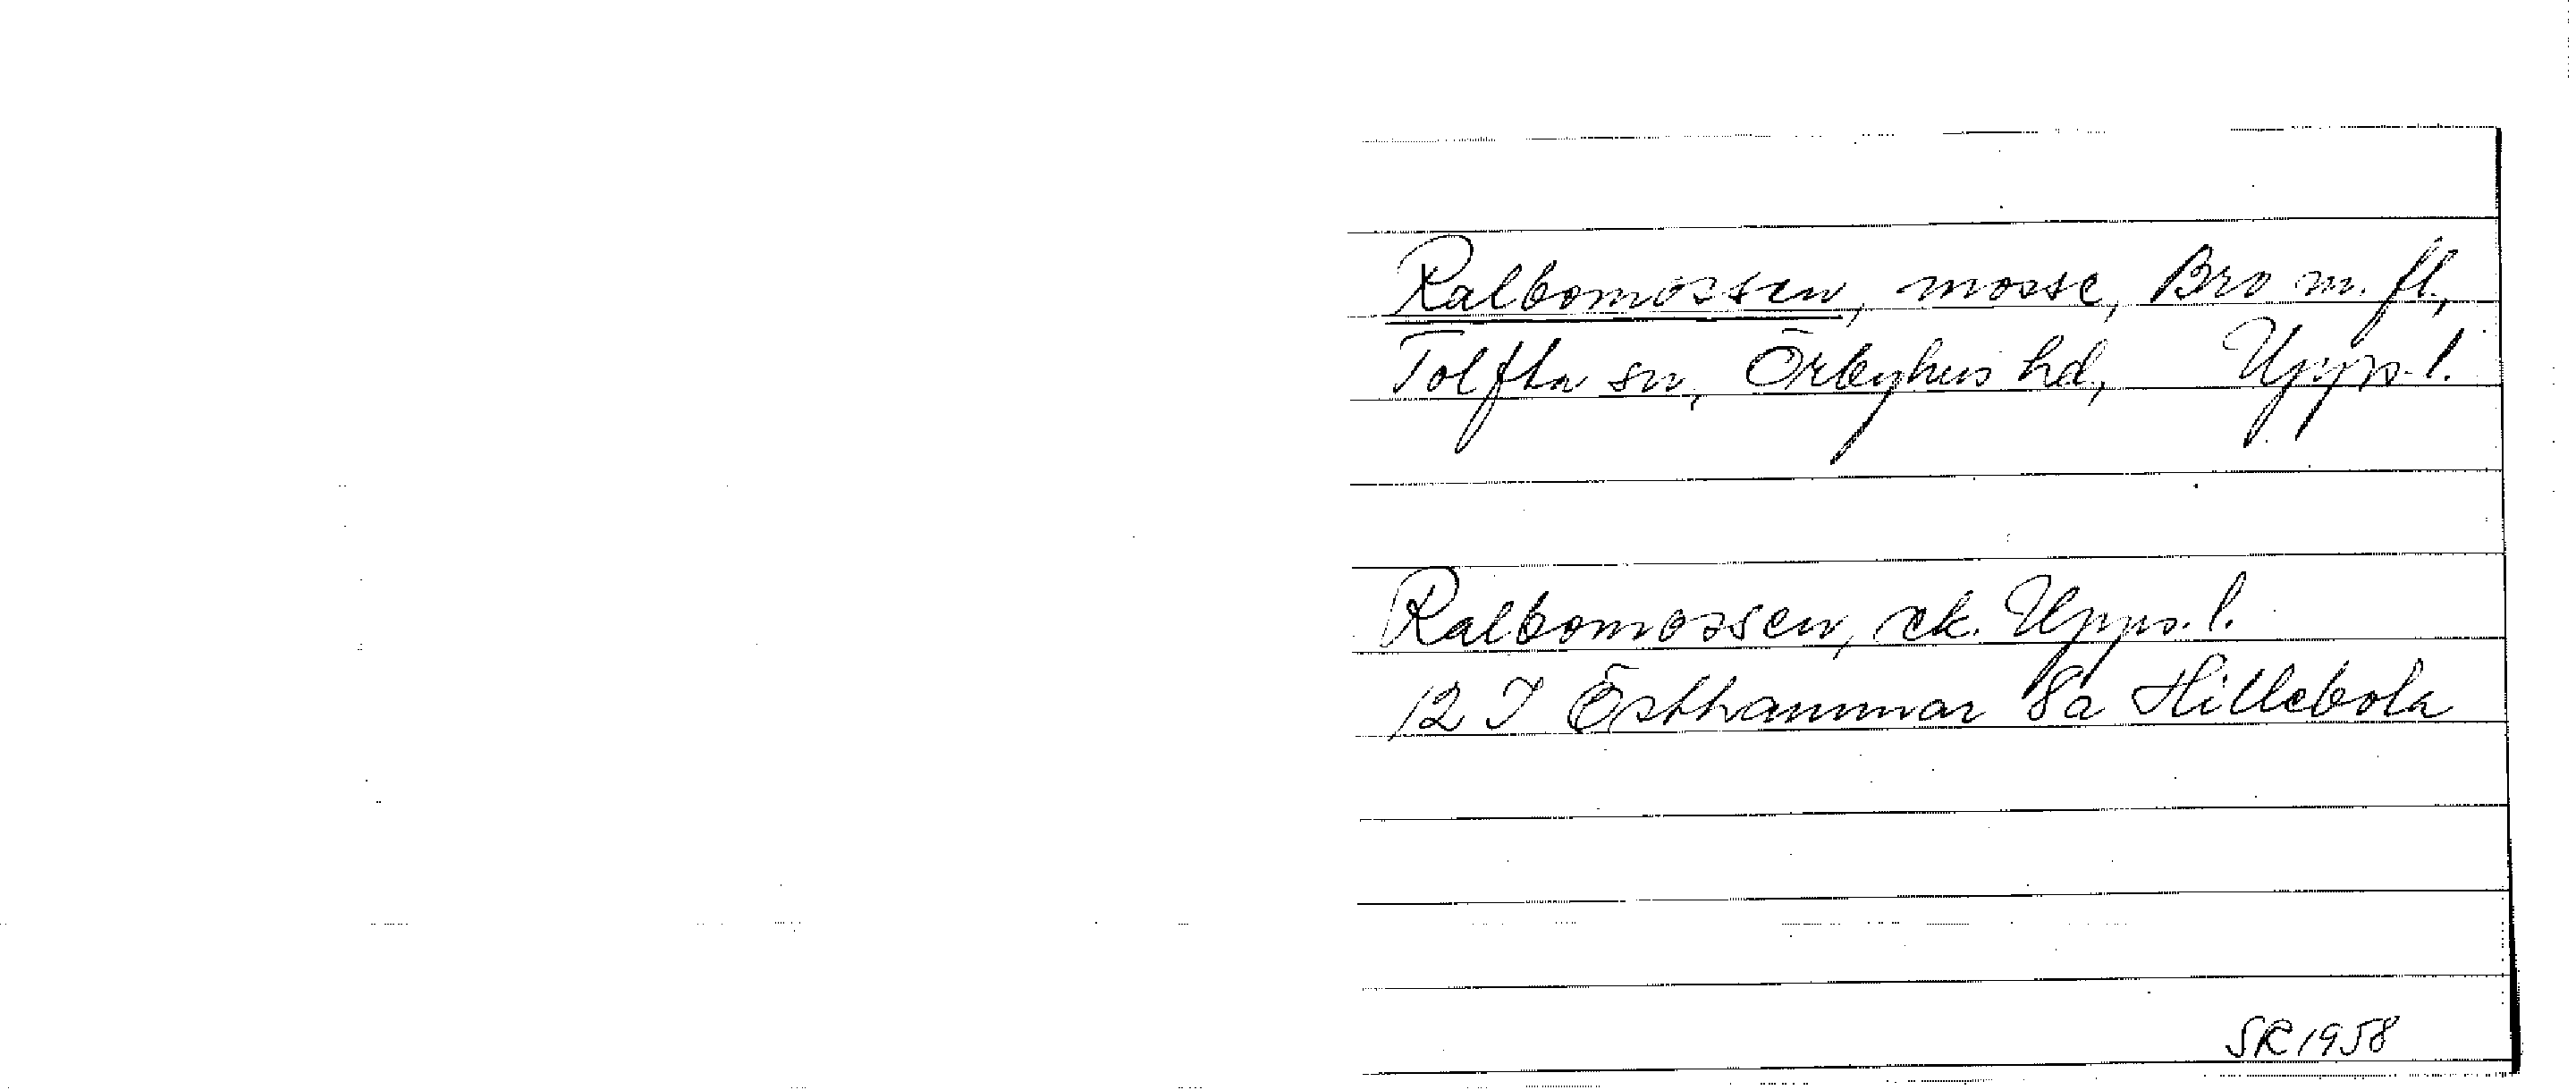 Ralbomossen, mosse, Bro m. fl.,
Tolfta sn, Örbyhus hd, Upps. l.
Ralbomossen, ek. Upps. l.
12 I Östhammar 8a Hillebola
SR 1958